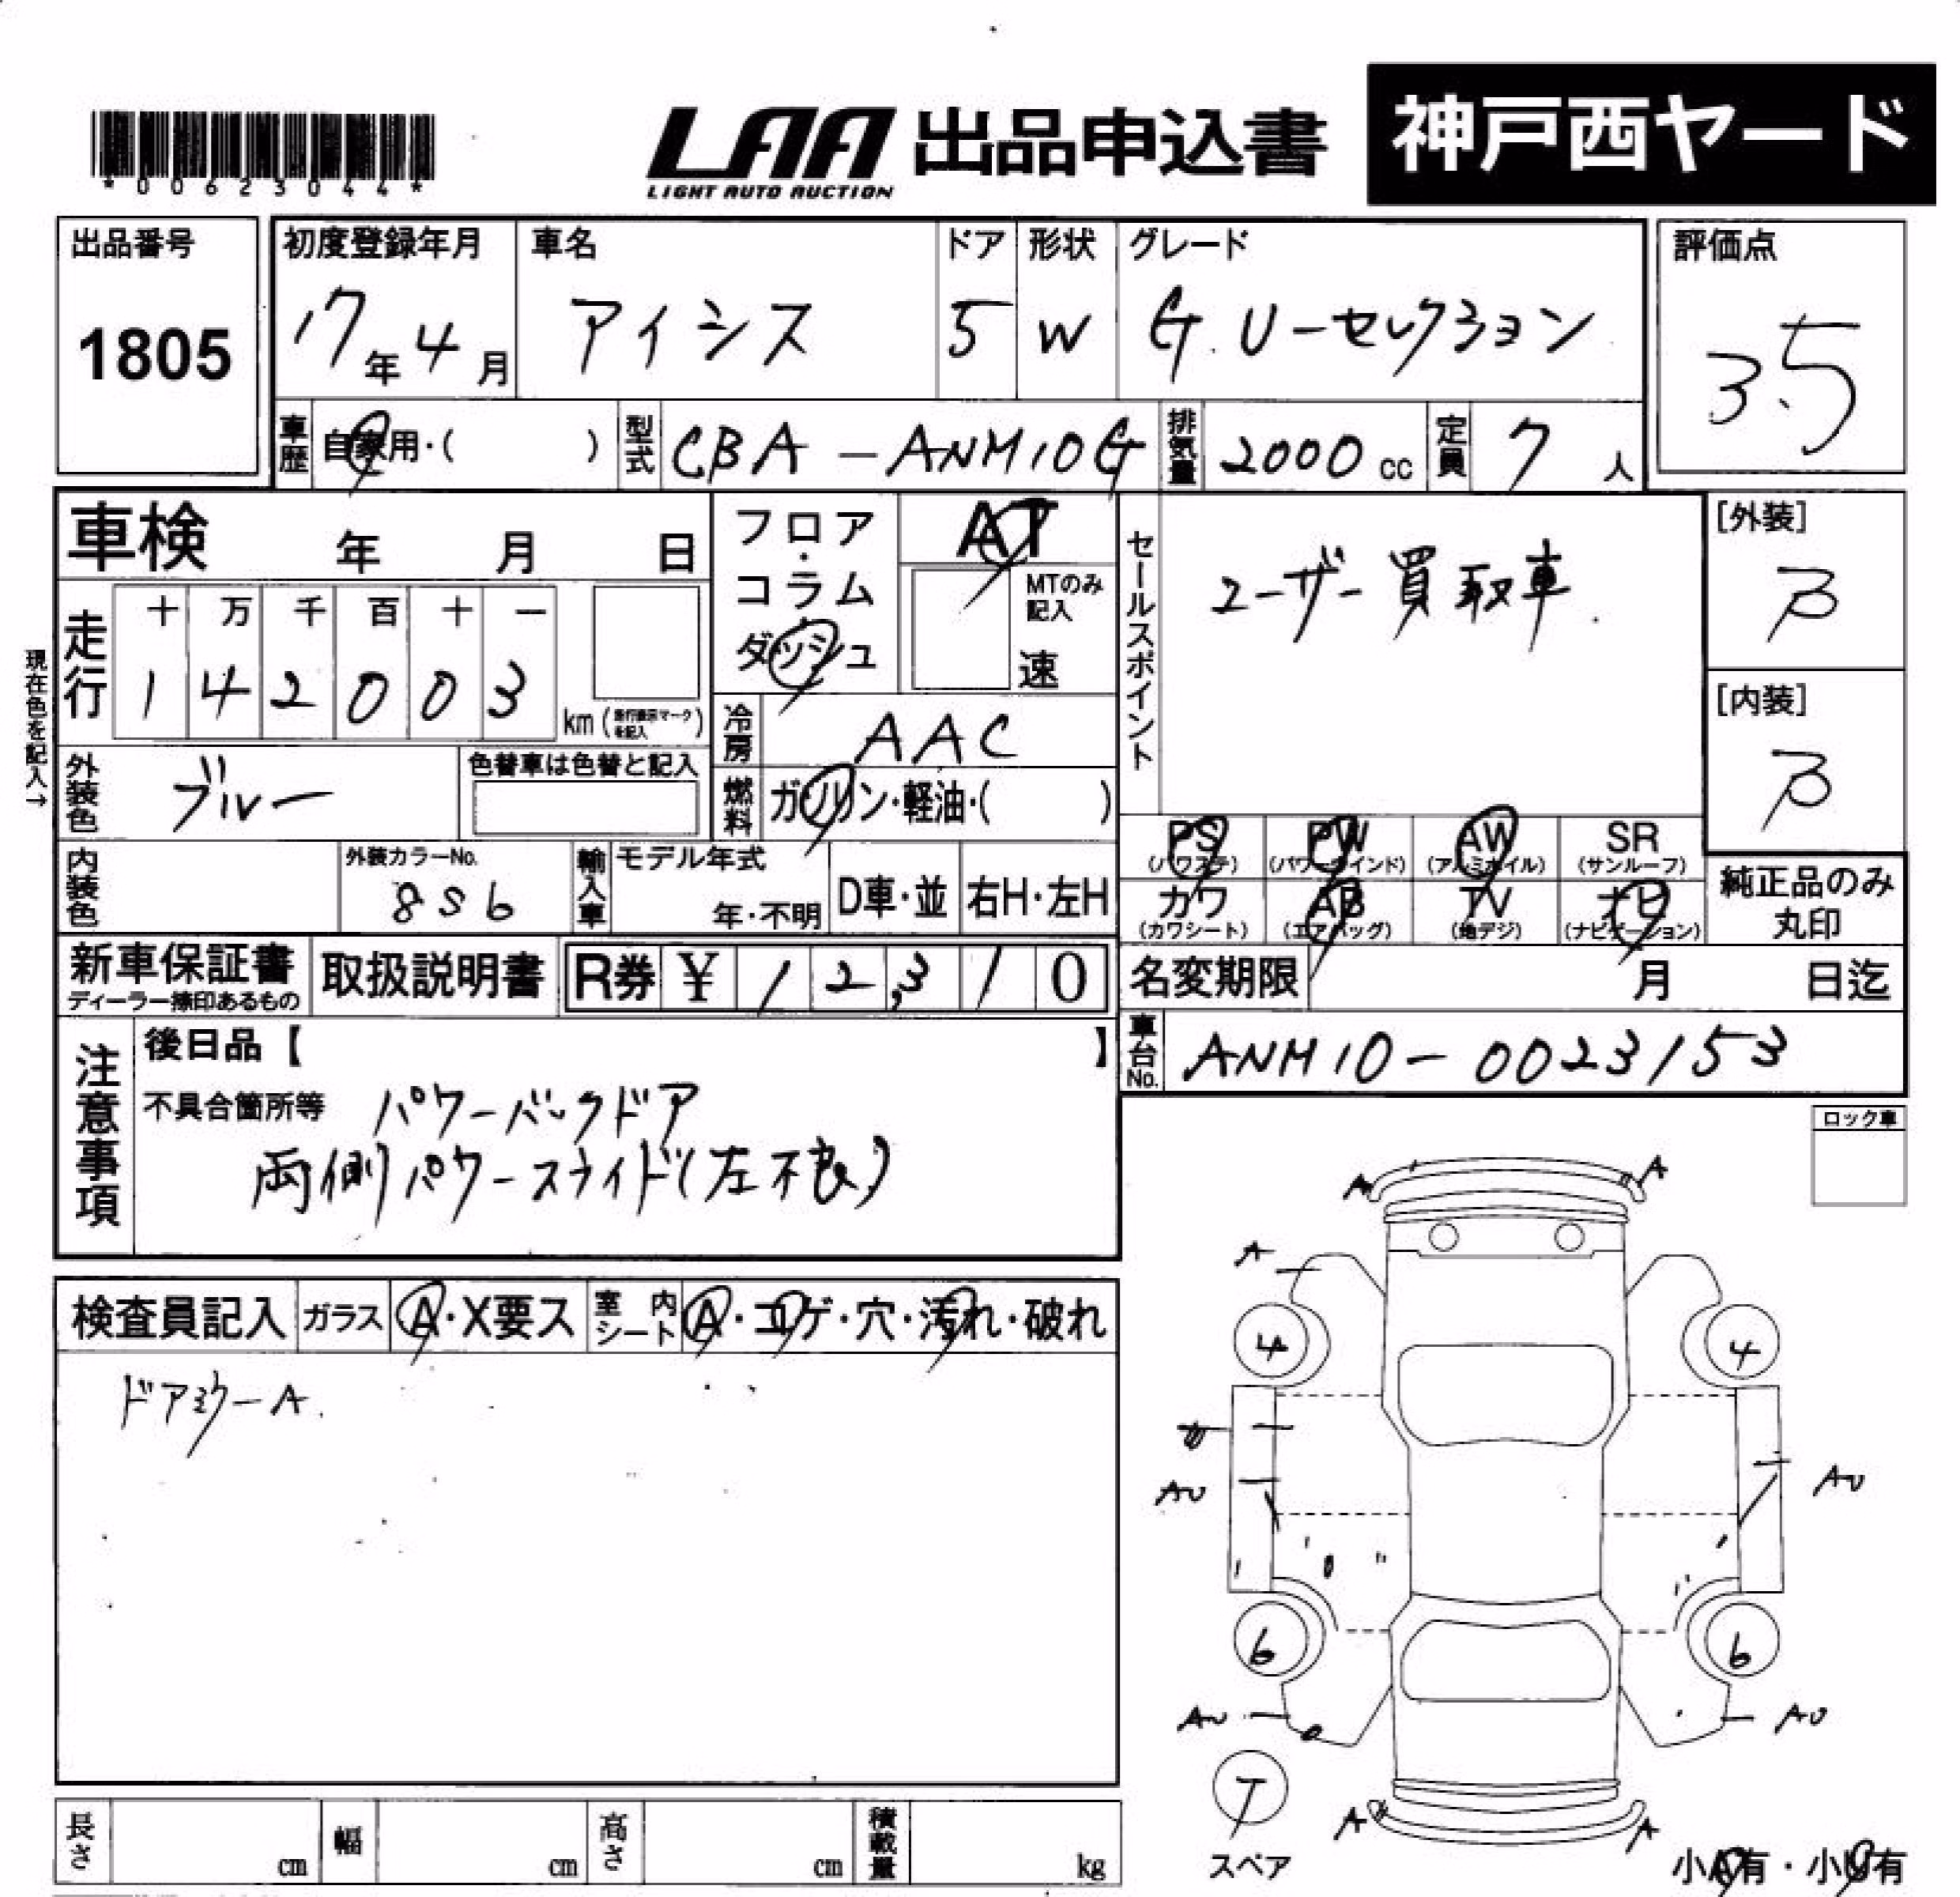 LAA 出品申込書 神戸西ヤード
LIGHT AUTO AUCTION
*00623044*
出品番号 1805
初度登録年月 17年4月
車名 アイシス
ドア 5
形状 W
グレード G. Uーセレクション
評価点 3.5
車歴 自家用・( )
型式 CBA-ANM10G
排気量 2000 cc
定員 7人
車検 年 月 日
フロア・コラム・ダッシュ
AT
MTのみ記入
速
セールスポイント
ユーザー買取車.
[外装] B
[内装] B
現在色を記入→
走行
十 万 千 百 十 一
1 4 2 0 0 3
km (走行表示マークを記入)
冷房 AAC
外装色 ブルー
色替車は色替と記入
燃料 ガソリン・軽油・( )
PS (パワステ)
PW (パワーウインド)
AW (アルミホイル)
SR (サンルーフ)
内装色
外装カラーNo. 8S6
輸入車
モデル年式 年・不明
D車・並
右H・左H
カワ (カワシート)
AB (エアバッグ)
TV (地デジ)
ナビ (ナビゲーション)
純正品のみ丸印
新車保証書
ディーラー捺印あるもの
取扱説明書
R券 ¥ 12,310
名変期限 月 日迄
車台No. ANM10-0023153
注意事項
後日品【 】
不具合箇所等 パワーバックドア
両側パワースライド(左不良)
ロック車
検査員記入
ガラス A・X要ス
室内シート A・コゲ・穴・汚れ・破れ
ドアミラーA.
A A
A
4 4
AU AU
6 6
AU AU
T
スペア
A A
長さ cm
幅 cm
高さ cm
積載量 kg
小A有・小U有